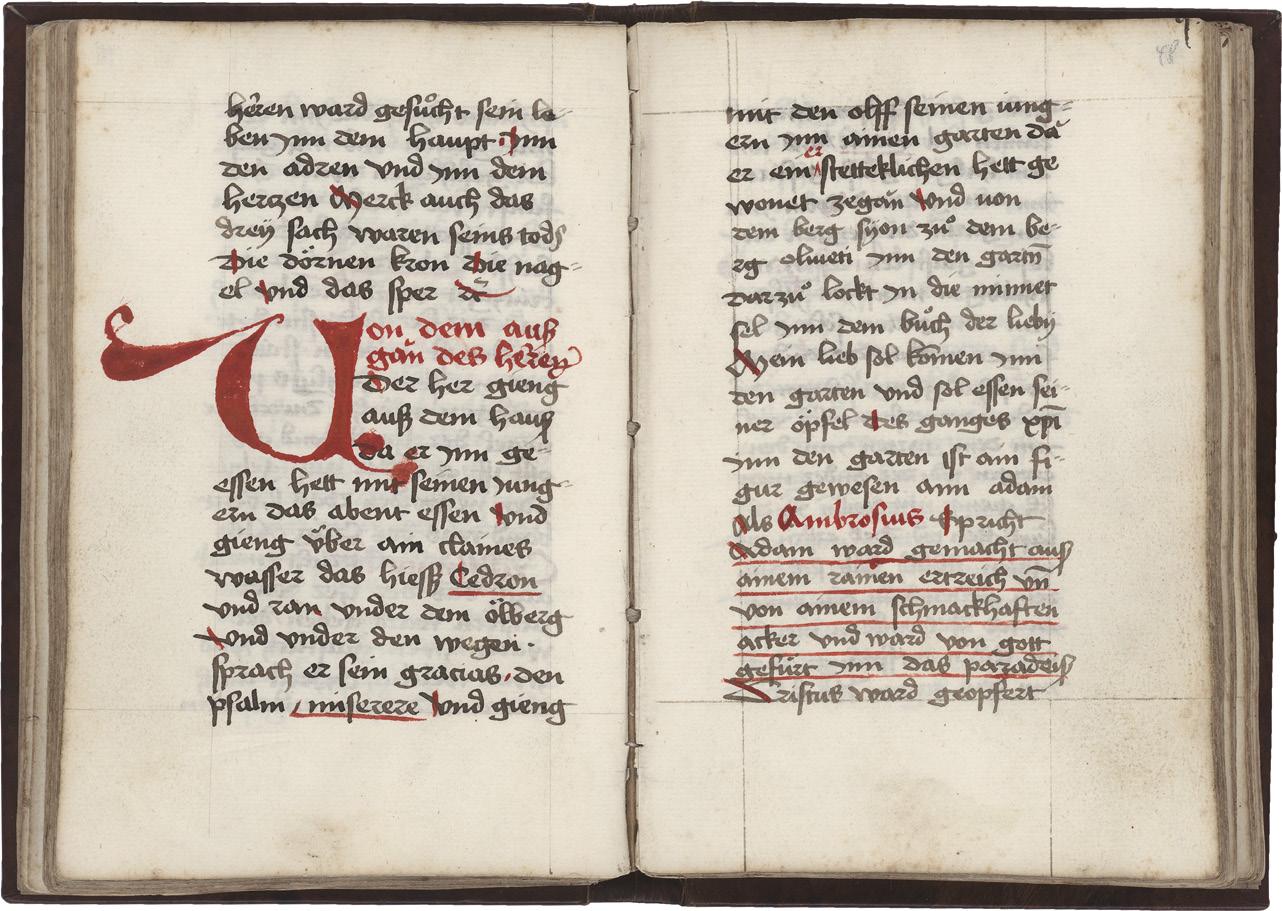 herren ward gesůcht sein le-
ben ynn dem haupt ynn
den adren vnd ynn dem
hertzen Merck auch das
dreÿ sach waren seins tods
Die dörnen kron Die nag-
el vnd das sper
Uon dem auß
gan des herren
Der her gieng
auß dem hauß
da er ynn ge-
essen hett mit seinen Jung-
ern das abent essen Vnd
gieng v̈ber ain claines
wasser das hiess Cedron
vnd ran vnder dem ölberg
Vnd vnder den wegen ·
sprach er sein gracias · den
psalm miserere Vnd gieng
mit den olff seinen iung-
ern ynn ainen garten da
er ein er stetteklichen hett ge
wonet zegän Vnd von
dem berg sÿon zů dem be-
rg oliueti ynn den gartn̄
Darzů lockt yn die minnet
sel ynn dem bůch der liebÿ
Mein lieb sol kömen ynn
den garten vnd sol essen sei-
ner öpfel Des ganges xp̄i
ynn den garten ist ain fi-
gur gewesen ann adam
Als Ambrosius Spricht
Adam ward gemacht aus
ainem rainen ertreich vn̄
von ainem schmackhaften
acker vnd ward von gott
gefürt ynn das paradeis
Cristus ward geopfert
48